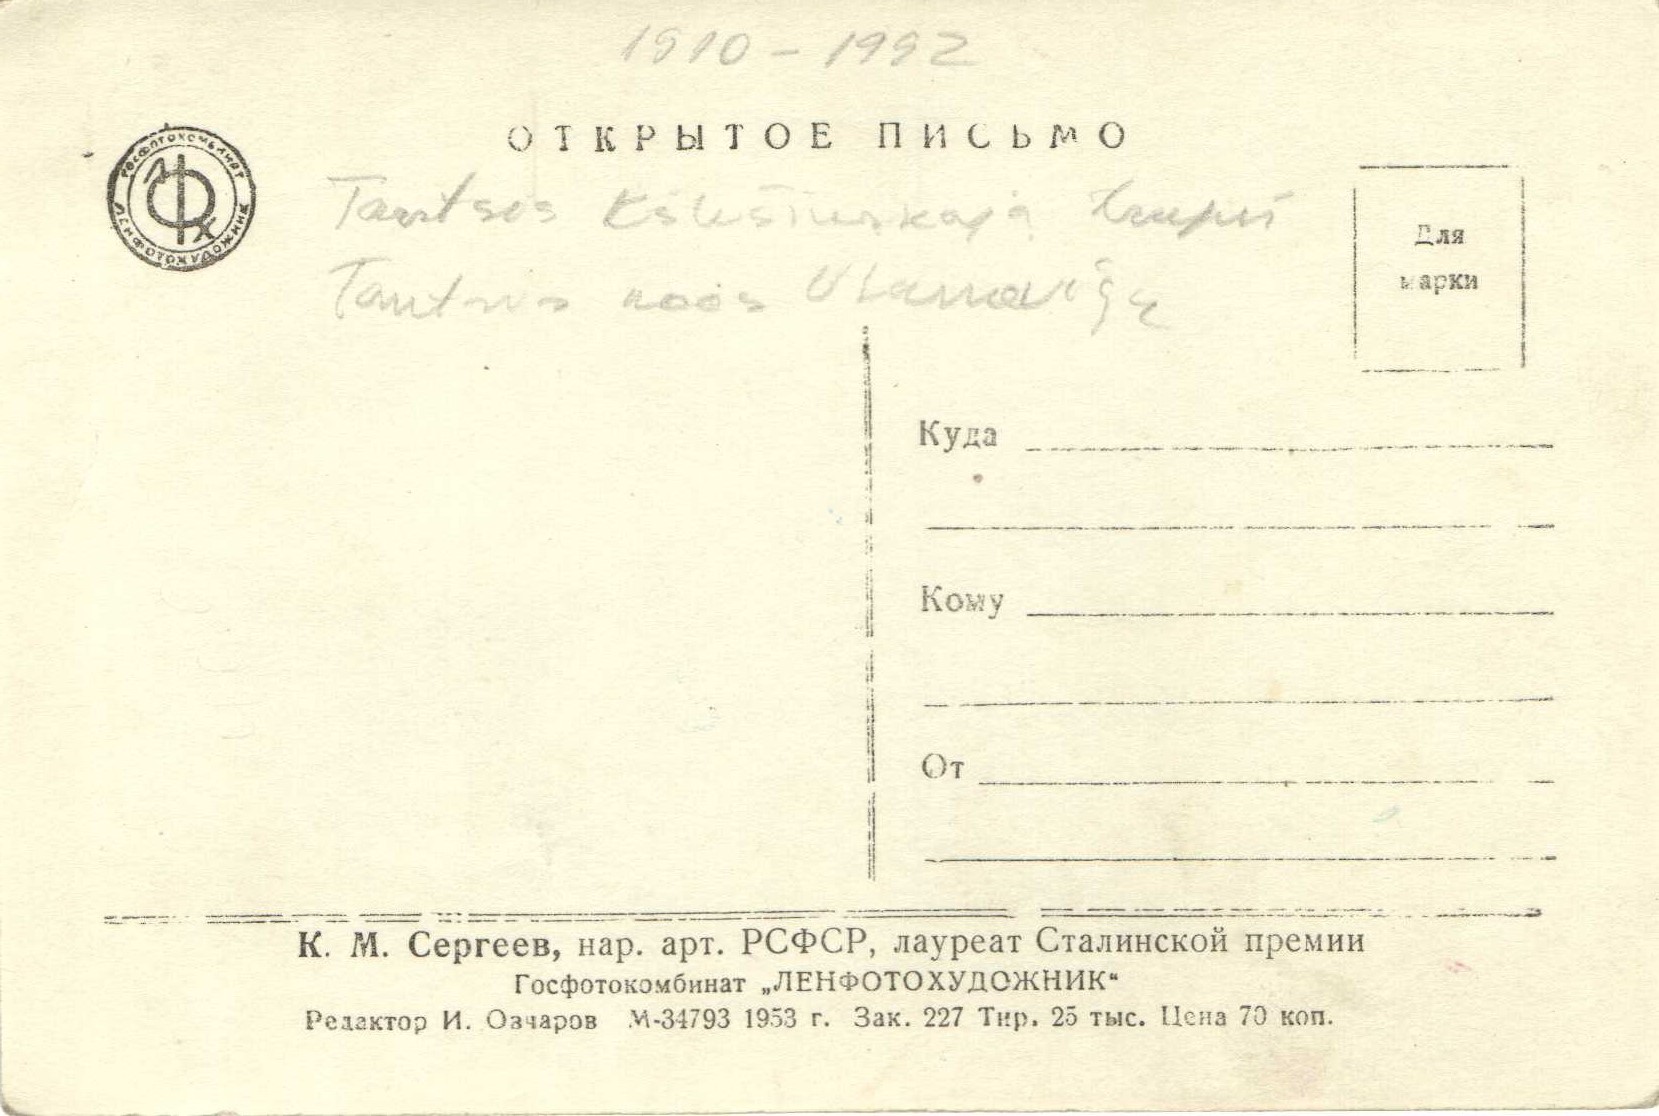 1910 - 1992
ОТКРЫТОЕ ПИСЬМО
ГОСФОТОКОМБИНАТ
ЛЕНФОТОХУДОЖНИК
ЛФХ
Tantsis
Tantsis noor Ulanovige
Для
марки
Куда
Кому
От
К. М. Сергеев, нар. арт. РСФСР, лауреат Сталинской премии
Госфотокомбинат „ЛЕНФОТОХУДОЖНИК“
Редактор И. Овчаров М-34793 1953 г. Зак. 227 Тир. 25 тыс. Цена 70 коп.